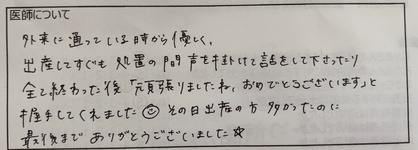 医師について
外来に通っている時から優しく、
出産してすぐも処置の間声を掛けて話をして下さったり
全て終わった後「頑張りましたね、おめでとうございます」と
握手してくれました☺ その日出産の方多かったのに
最後までありがとうございました☆